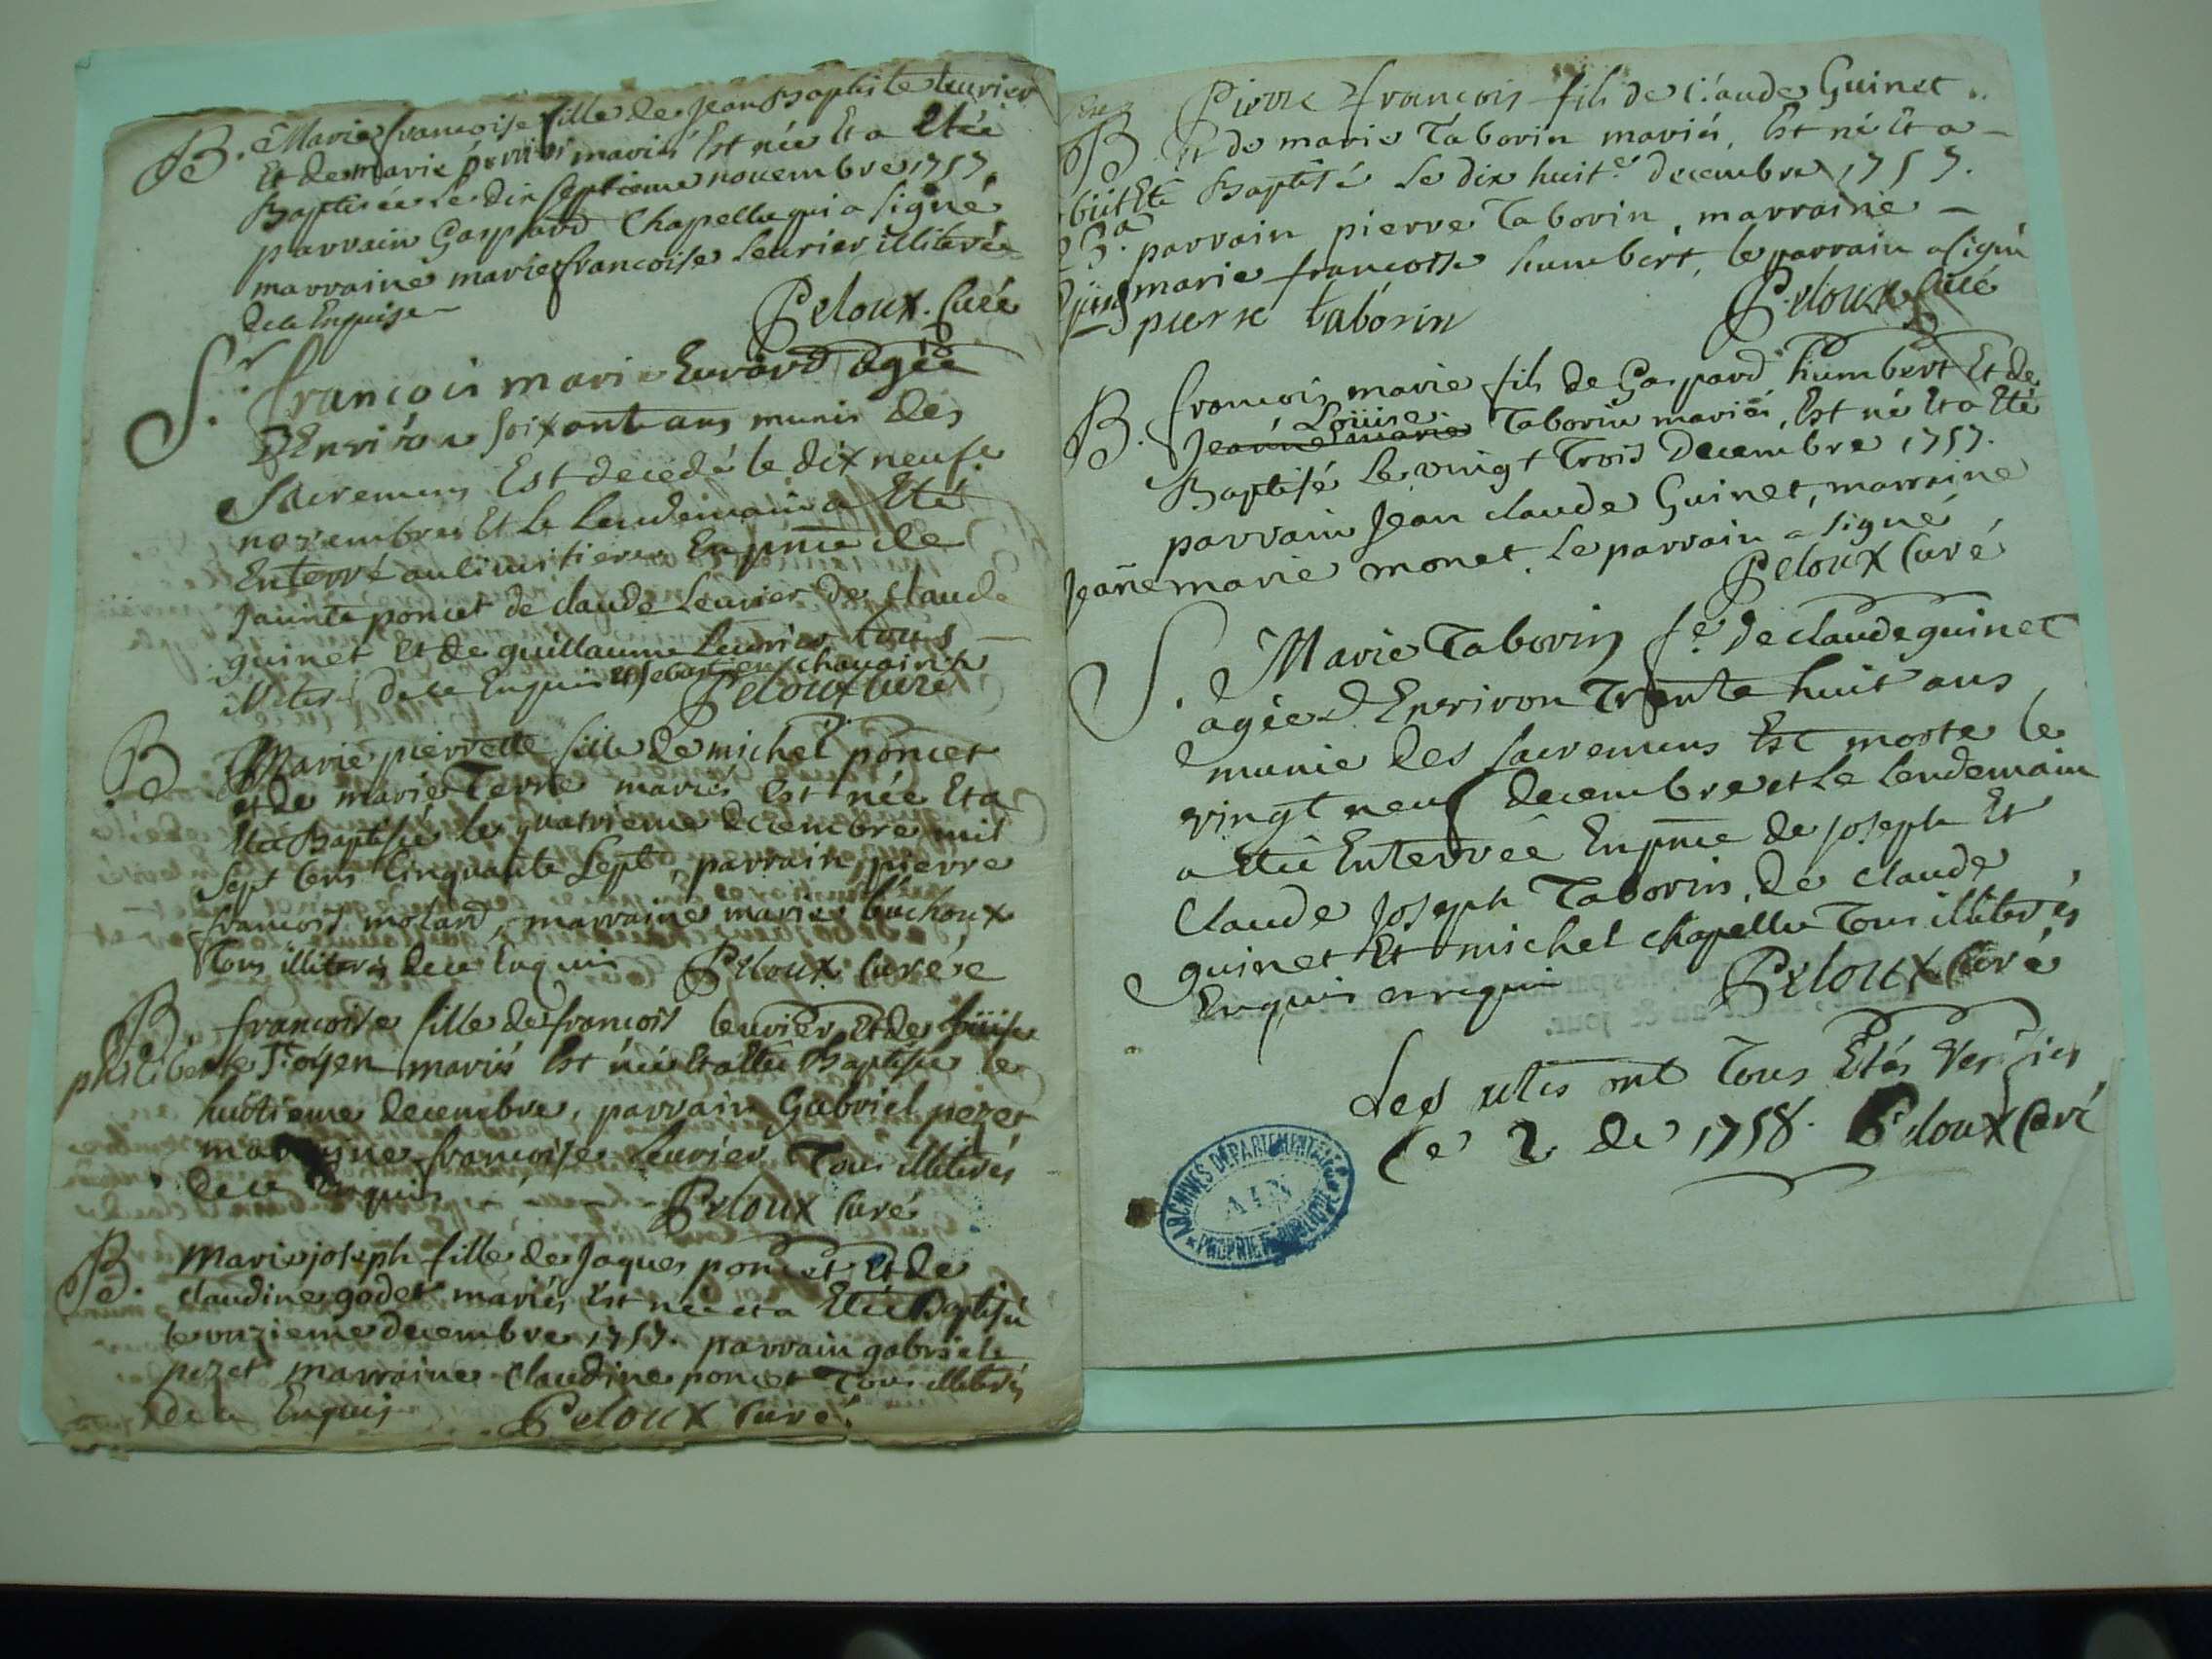 B. Marie françoise fille de Jean Baptiste leurier
Et de marie mariés Est née Et a Etée
Baptisée Le dix septieme novembre 1757.
parrain Gaspard Chapellu qui a signé
marraine marie françoise Leurier illiterée
de ce Enquise
Peloux. Curé
S.r françois marie Euvrard agée
D'Environ soixante ans munis des
Sacremens Est decedé le dix neufe
novembre Et Le Lendemain a Eté
Enterré au Cimitiere En pnce de
poncet de claude Leurier de claude
guinet Et de guillaume Leurier tous
de ce Enquis
Peloux Curé
B Marie pierrette fille de michel poncet
et de marie Terne mariés Est née Et a
Etée Baptisée le quatrieme decembre mil
Sept Cens Cinquante Sept, parrain, pierre
françois molard, marraine marie buchoux
Tous illiterés de ce Enquis Peloux Curé
B françoise fille de françois leurier Et de
philiberte mariés Est née Et a Etée Baptisée le
huitieme decembre, parrain Gabriel pezet
marraine françoise Leurier Tous illiterés
de ce Enquis
Peloux Curé
B. Marie joseph fille de Jaques poncet Et de
claudine godet mariés Est née et a Etée Baptisée
le onzieme decembre 1757. parrain gabriele
pezet marraine Claudine poncet Tous illiterés
de ce Enquis Peloux Curé.
Pierre françois fils de Claude Guinet
B. Et de marie Taborin mariés, Est né Et a
Eté Baptisé Le dix huit.e decembre 1757.
parrain pierre Taborin, marraine
marie françoise humbert, le parrain a signé
pierre taborin
Peloux Curé
B. françois marie fils de Gaspard humbert Et de
Louise
Jeanne marie Taborin mariés, Est né Et a Eté
Baptisé Le vingt Trois Decembre 1757.
parrain Jean claude Guinet, marraine
Jeanne marie monet. Le parrain a signé
Peloux Curé
S. Marie Taborin f.e de claude guinet
agée D'Environ Trente huit ans
munie des sacremens Est morte le
vingt neuf decembre et le lendemain
a Etée Enterrée En pnce de Joseph Et
Claude Joseph Taborin, de claude
guinet Et michel chapellu Tous illiterés
Enquis
Peloux Curé
Les ont Tous Etés
Ce 2 de 1758. Peloux Curé
ARCHIVES DÉPARTEMENTALES
AIN
PROPRIÉTÉ PUBLIQUE